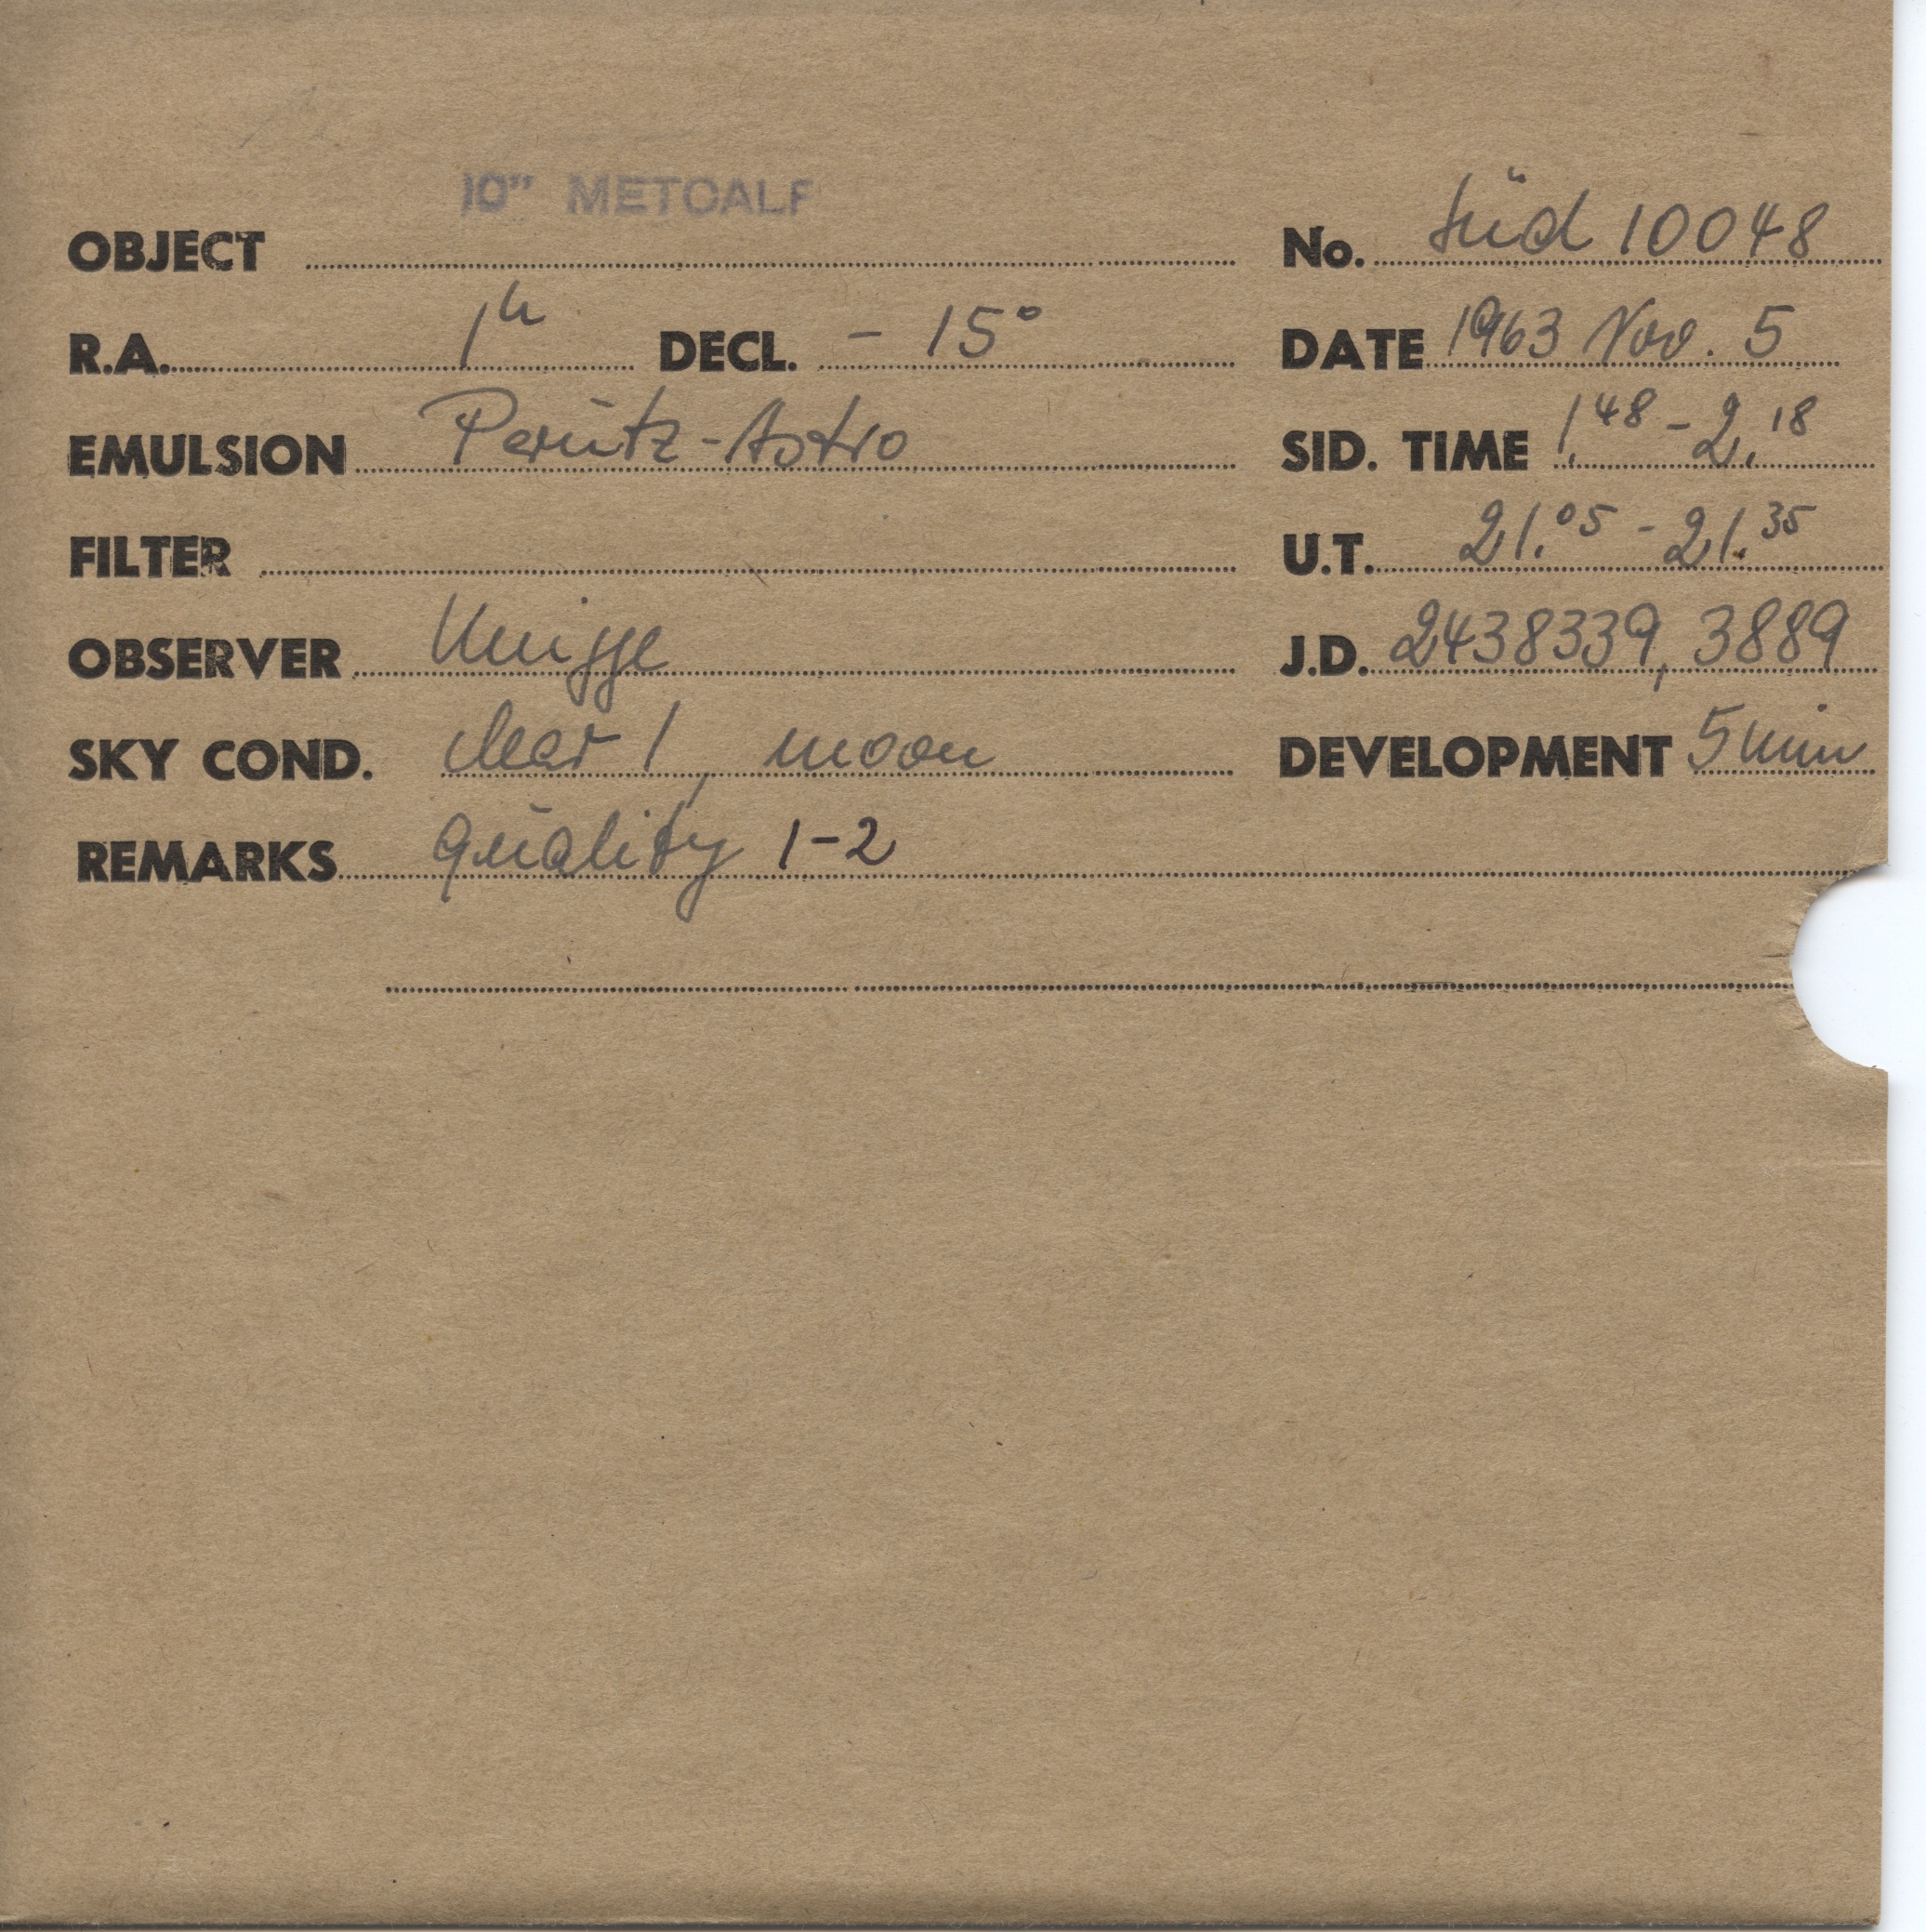 10" METCALF
OBJECT No. Süd 10048
R.A. 1h DECL. - 15° DATE 1963 Nov. 5
EMULSION Perutz-Astro SID. TIME 1.48 - 2.18
FILTER U.T. 21.05 - 21.35
OBSERVER Knigge J.D. 2438339,3889
SKY COND. clear 1, moon DEVELOPMENT 5 min
REMARKS quality 1-2